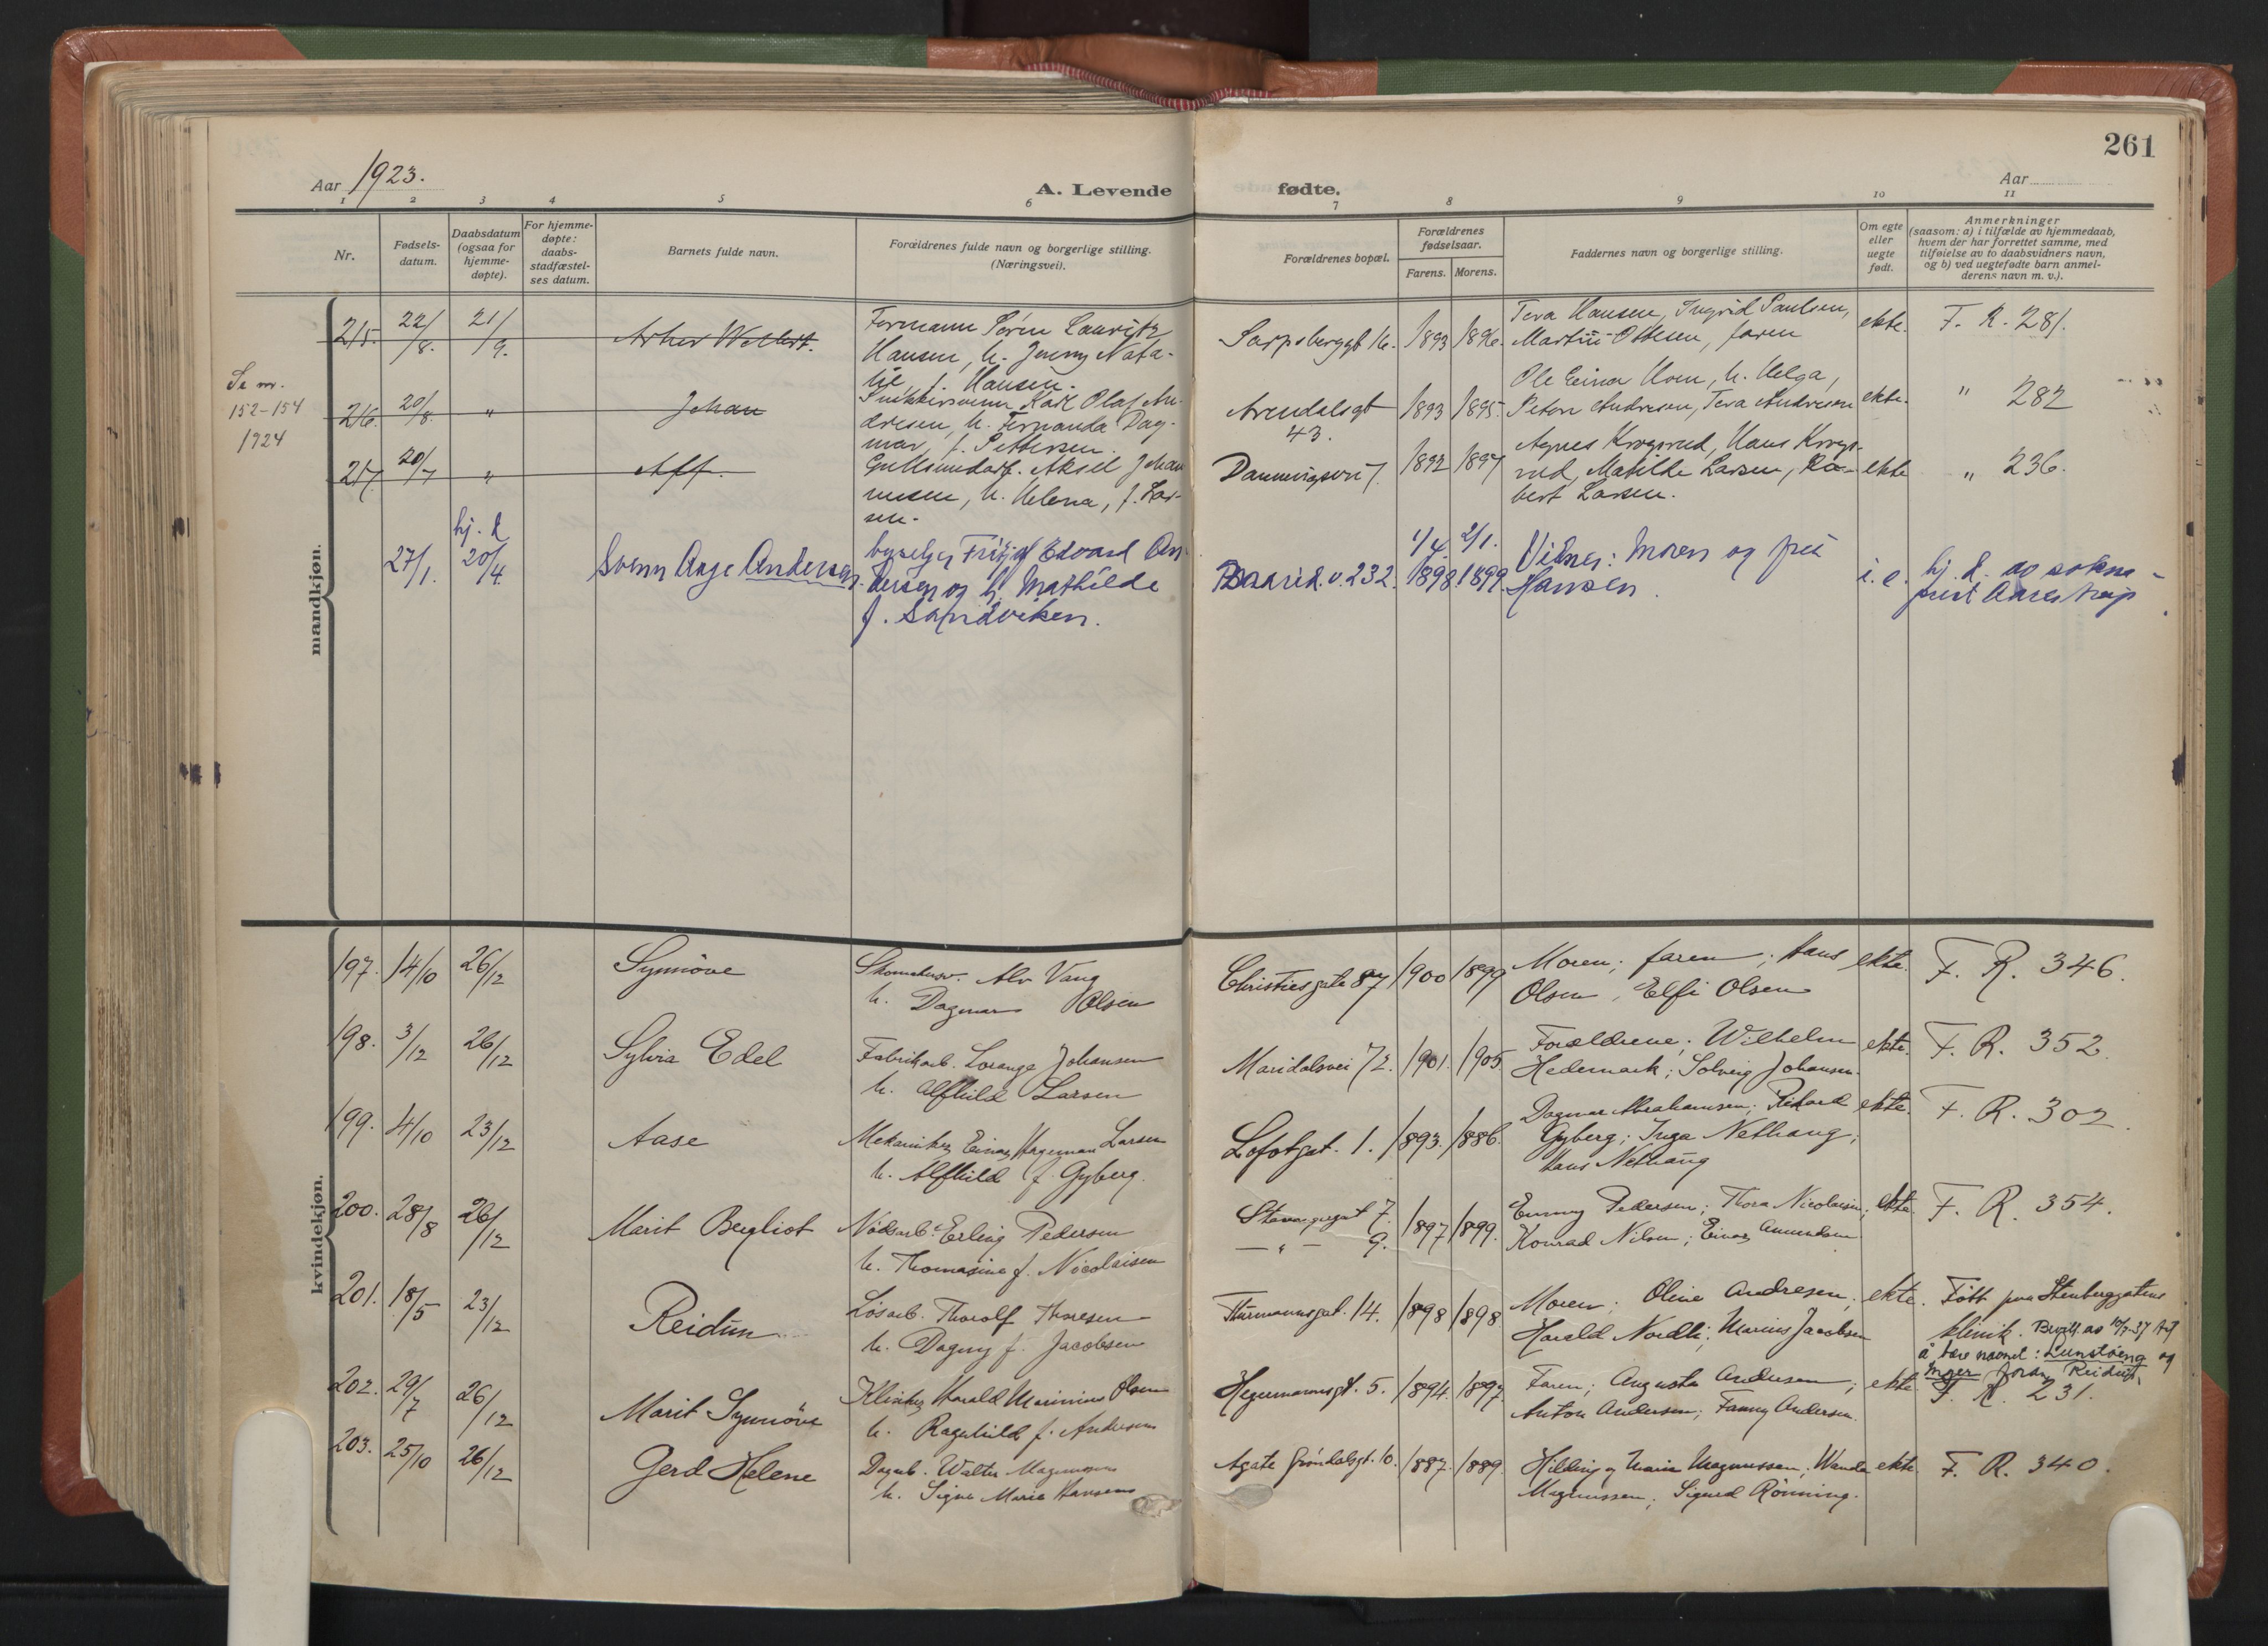 261
Aar 1923.
A. Levende fødte.
Aar
1 2 3 4 5 6 7 8 9 10 11
Nr.
Fødsels-
datum.
Daabsdatum
(ogsaa for
hjemme-
døpte).
For hjemme-
døpte:
daabs-
stadfæstel-
ses datum.
Barnets fulde navn.
Forældrenes fulde navn og borgerlige stilling.
(Næringsvei).
Forældrenes bopæl.
Forældrenes
fødselsaar.
Farens. Morens.
Faddernes navn og borgerlige stilling.
Om egte
eller
uegte
født.
Anmerkninger
(saasom: a) i tilfælde av hjemmedaab,
hvem der har forrettet samme, med
tilføielse av to daabsvidners navn,
og b) ved uegtefødte barn anmel-
derens navn m. v.).
mandkjøn.
Se nr.
152-154
1924
215. 22/8. 21/9.
Formann Søren Lauritz
Hansen, h. Jenny Nata-
lie f. Hansen.
1893 1896.
Tera Hansen, Ingrid Paulsen,
Martin Ottesen, faren
ekte. F. R. 281.
216. 20/8. " Johan
Snekkersvenn Karl Olaf An-
dresen, h. Fernanda Dag-
mar, f. Pettersen.
Arendalsgt
43.
1893 1895.
Ole Einar Moen, h. Helga,
Petra Andresen, Tera Andresen
ekte. " 282
217 20/7 " Alf.
Gullsmedarb. Aksel Johan
nesen, h. Helena, f. Lar-
sen.
Danmingsvei 7.
1892 1897
Agnes Krogsrud, Hans Krogs-
rud, Matilde Larsen, Ro-
bert Larsen.
ekte " 236.
27/1. hj. d. 20/4.
Svenn Aage Andersen.
Fritjof Edvard An-
dersen og h. Mathilde
f. Sandviken.
Maarid.v. 232.
1/4. 1898. 2/1. 1899.
Vitner: Moren og frk
Hansen.
i. e.
hj. d. av sokne-
prest Aarestrup
kvindekjøn.
197. 14/10 26/12 Synnöve
Skomakersv. Alv Vang
h. Dagmar Olsen
Christiesgate 87
1900 1899
Moren; faren; Hans
Olsen, Elfi Olsen
ekte. F. R. 346.
198. 3/12 26/12 Sylvia Edel
Fabrikarb. Lorang Johansen
h. Alfhild Larsen
Maridalsvei 72.
1901. 1905.
Forældrene; Wilhelm
Hedemark; Solveig Johansen.
ekte. F. R. 352.
199. 4/10 23/12 Aase
Mekaniker Einar Hageman Larsen
h. Alfhild f. Gyberg.
Lofotgat. 1.
1893. 1886.
Dagmar Abrahamsen; Rikard
Gyberg; Inga Nethaug;
Hans Nethaug
ekte. F. R. 302.
200. 28/8 26/12 Marit Bergliot
Erling Pedersen
h. Thomasine f. Nicolaisen
Stavangergat 7.
— " — 9.
1897 1899.
Emmy Pedersen; Thora Nicolaisen;
Konrad Nilsen; Einar Amundsen
ekte. F. R. 354.
201. 18/5 23/12 Reidun
Løsarb. Thorolf Thoresen
h. Dagny f. Jacobsen
Thurmannsgat. 14.
1898 1898
Moren; Oline Andresen;
Harald Nordli; Marius Jacobsen
ekte. Født paa Stenberggatens
klinik.
å bære navnet: Lunstøeng og
Moer foran Reidun.
202. 29/7 26/12 Marit Synnöve
Harald Marinius Olsen
h. Ragnhild f. Andersen
Hegermannsgt. 5.
1894. 1897.
Faren; Augusta Andersen;
Anton Andersen; Fanny Andersen.
ekte. F. R. 231.
203. 25/10 26/12 Gerd Helene
Dagarb. Walter Magnussen
h. Signe Marie Hansen
Agate Grøndalsgt. 10.
1887. 1889.
Hilding og Maria Magnussen; Wanda
Magnussen; Sigurd Rönning.
ekte. F. R. 340.